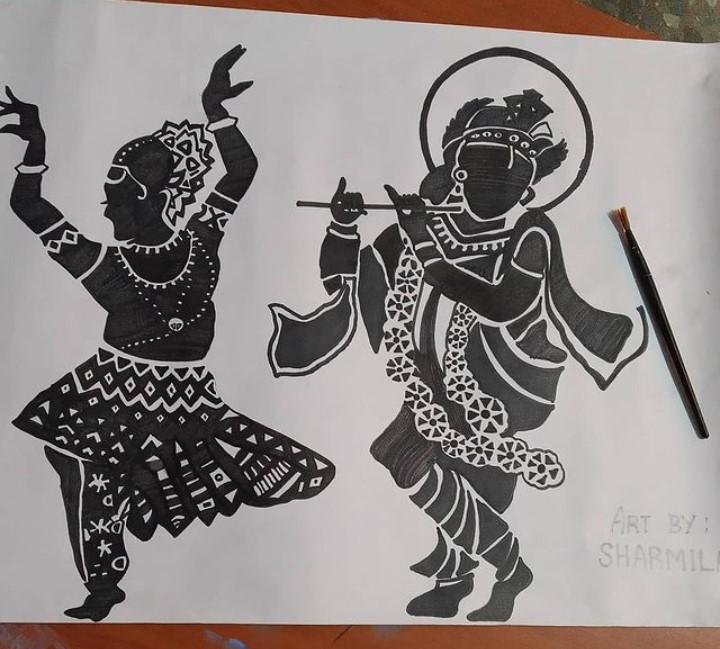 ART BY:
SHARMILA